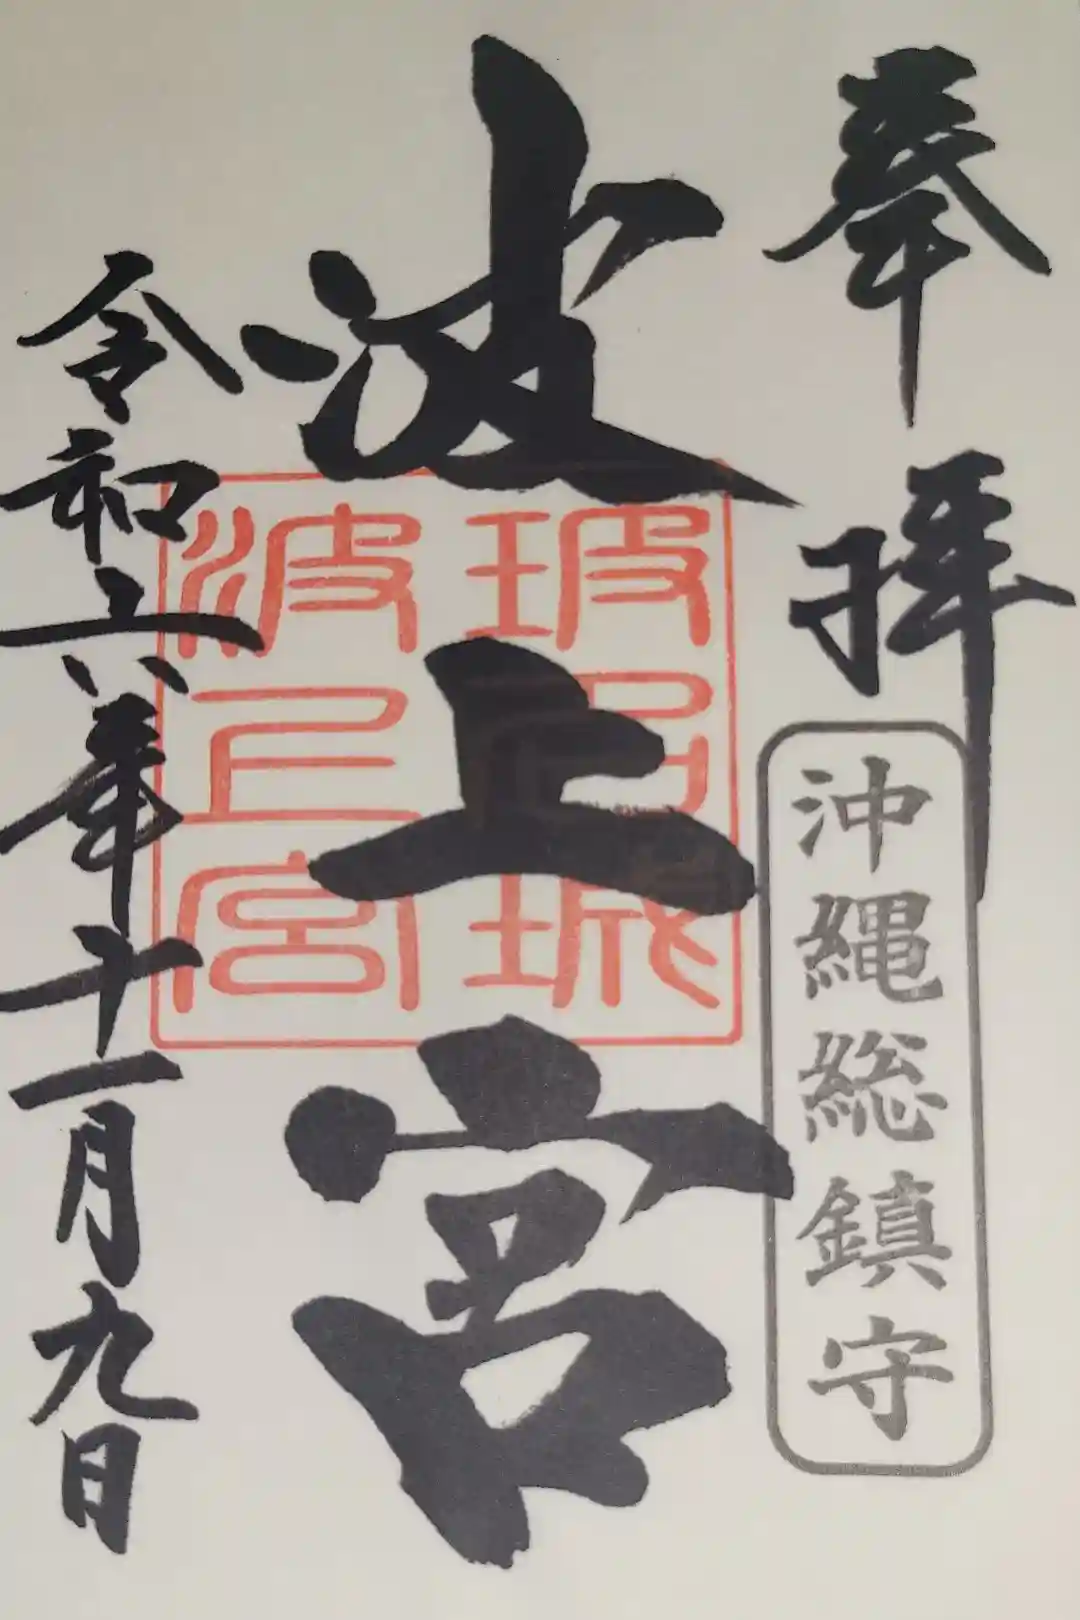 奉拝
沖縄総鎮守
波上宮
玻名城
波上宮
令和六年十一月九日